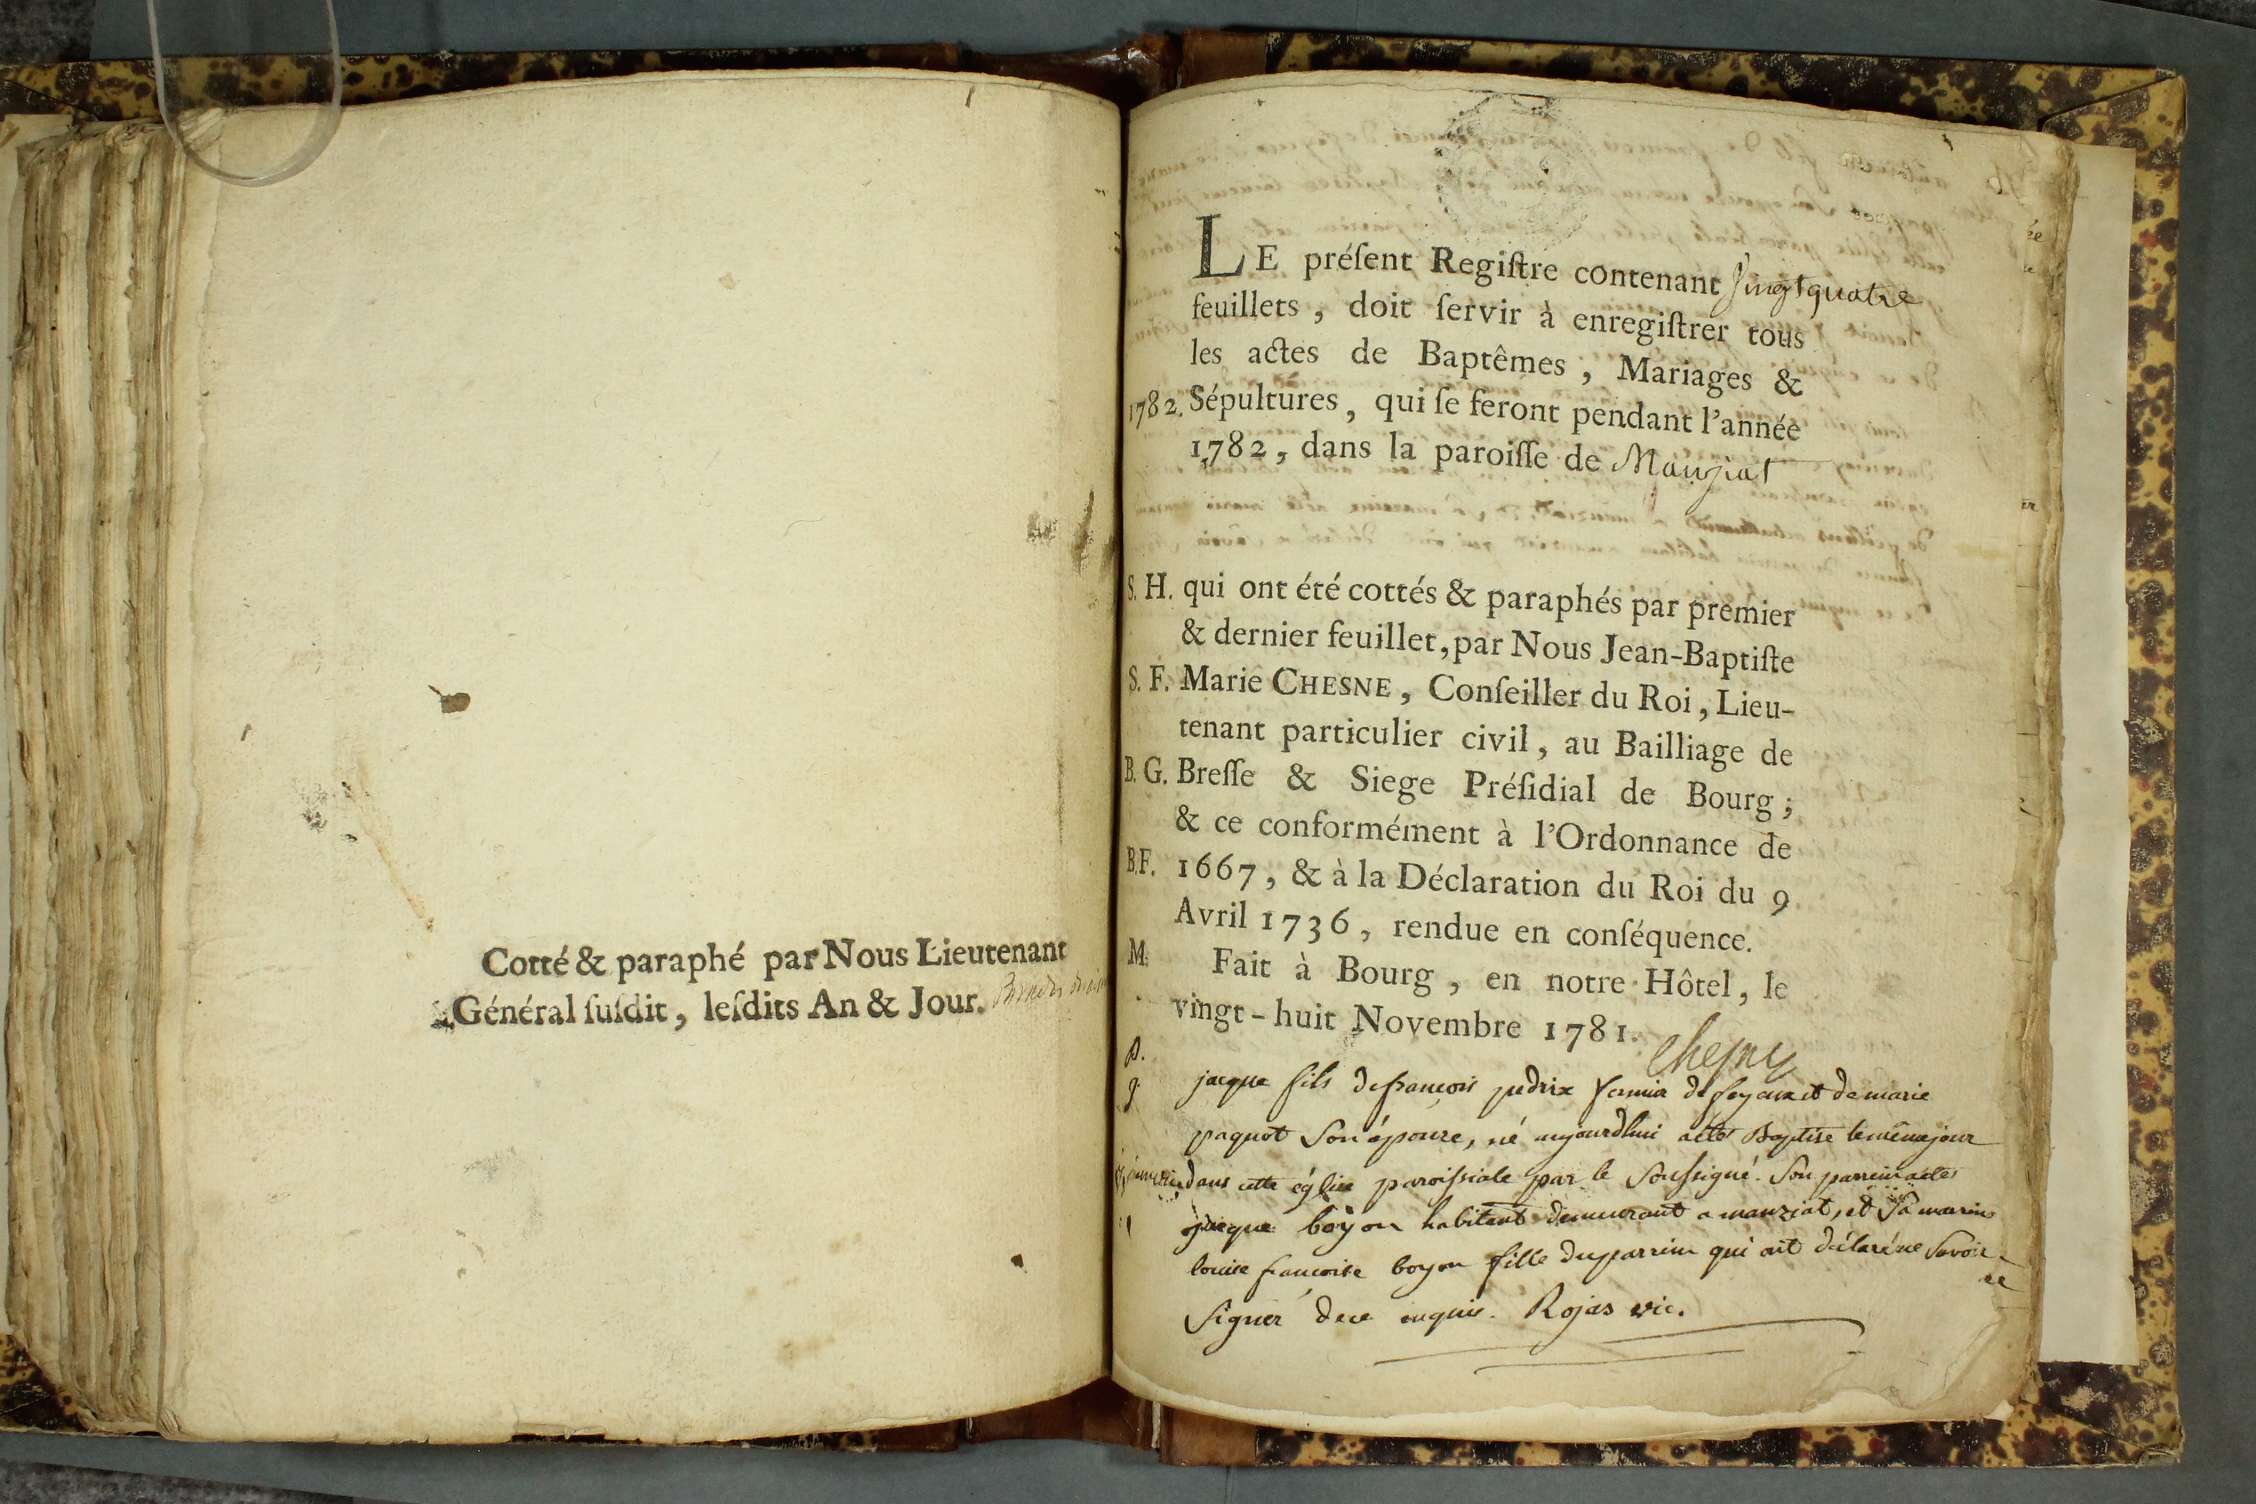 Cotté & paraphé par Nous Lieutenant
Général ſuſdit, leſdits An & Jour.
LE préſent Regiſtre contenant vingt quatre
feuillets, doit ſervir à enregiſtrer tous
les actes de Baptêmes, Mariages &
1782. Sépultures, qui ſe feront pendant l'année
1782, dans la paroiſſe de Manziat
S. H. qui ont été cottés & paraphés par premier
& dernier feuillet, par Nous Jean-Baptiſte
S. F. Marie CHESNE, Conſeiller du Roi, Lieu-
tenant particulier civil, au Bailliage de
B. G. Breſſe & Siege Préſidial de Bourg;
& ce conformément à l'Ordonnance de
B.F. 1667, & à la Déclaration du Roi du 9
Avril 1736, rendue en conſéquence.
M. Fait à Bourg, en notre Hôtel, le
vingt-huit Novembre 1781.
Chesne
B.
g. jacque fils de francois pedrix fermier de feyoux et de marie
paquot Son épouse, né aujourdhui a été Baptise le même jour
dans cette église paroissiale par le Soussigné. Son parrein a été
jacque boyon habitant demeurant a manziat, et Sa marine
louise francoise boyon fille du parrein qui ont déclaré ne Savoir
Signer de ce enquis. Rojas vic.